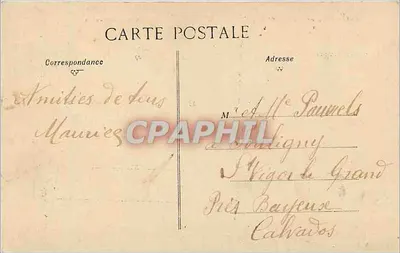 CARTE POSTALE
Correspondance
Adresse
Amitiés de tous
Maurice
M r et Me Pauwels
à
St Vigor le Grand
Près Bayeux
Calvados
CPAPHIL